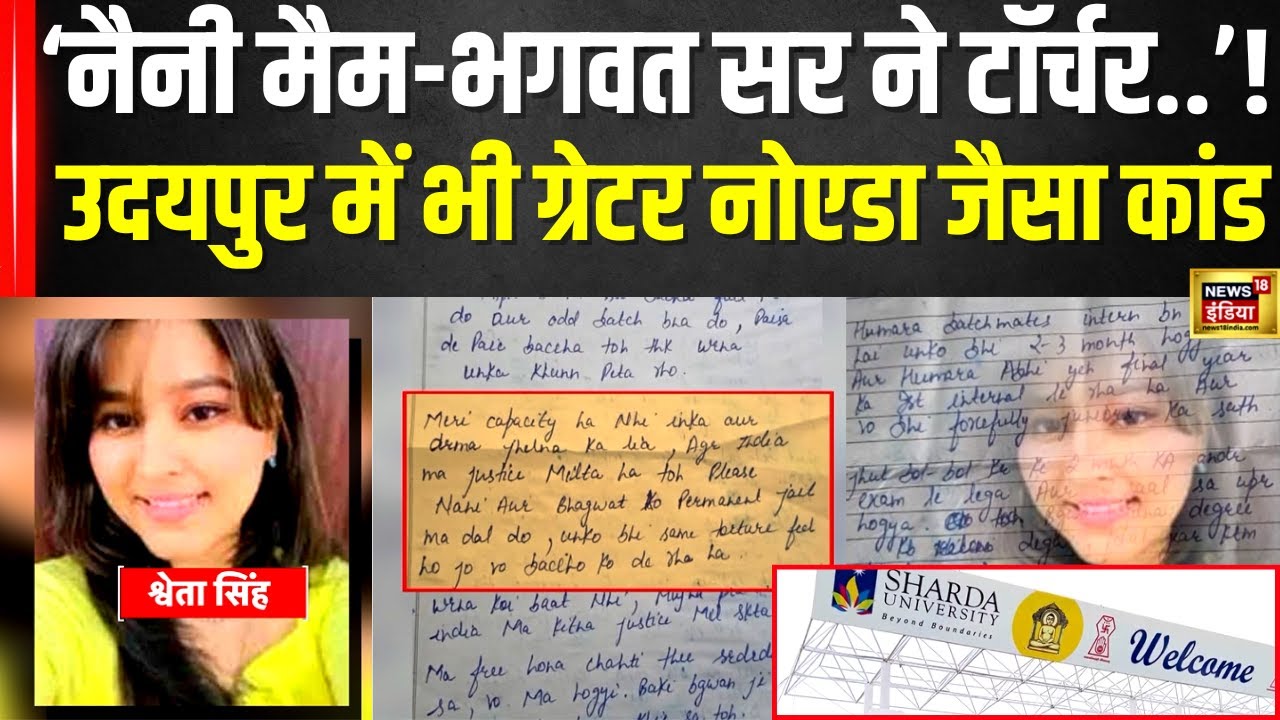 ‘नैनी मैम-भगवत सर ने टॉर्चर..’!
उदयपुर में भी ग्रेटर नोएडा जैसा कांड
NEWS 18
इंडिया
news18india.com
श्वेता सिंह
do aur odd batch bna do, Paisa
de Paie baccha toh thk wrna
unka khunn Peta rho.
Meri capacity ha Nhi inka aur
drma jhelna ka lia, Agr India
ma justice Milta ha toh Please
Nahi Aur Bhagwat ko Permanent jail
ma dal do, unko bhi same torture feel
ho jo vo baccho ko de rha ha.
wrna koi baat Nhi, Mujhe
india Ma kitna justice Mel skta
Ma free hona chahti thee
sa, vo Ma hogyi. Baki bgwan ji
Humara batchmates intern bn
hai unko bhi 2-3 month
Aur Humara Abhi yeh final year
ka 1st internal le rha ha Aur
vo bhi forcefully juniors ka sath.
jhut bol-bol ke ke 2 ka andr
exam le lega Aur sa upr
hogya. toh degree
SHARDA
UNIVERSITY
Beyond Boundaries
Welcome